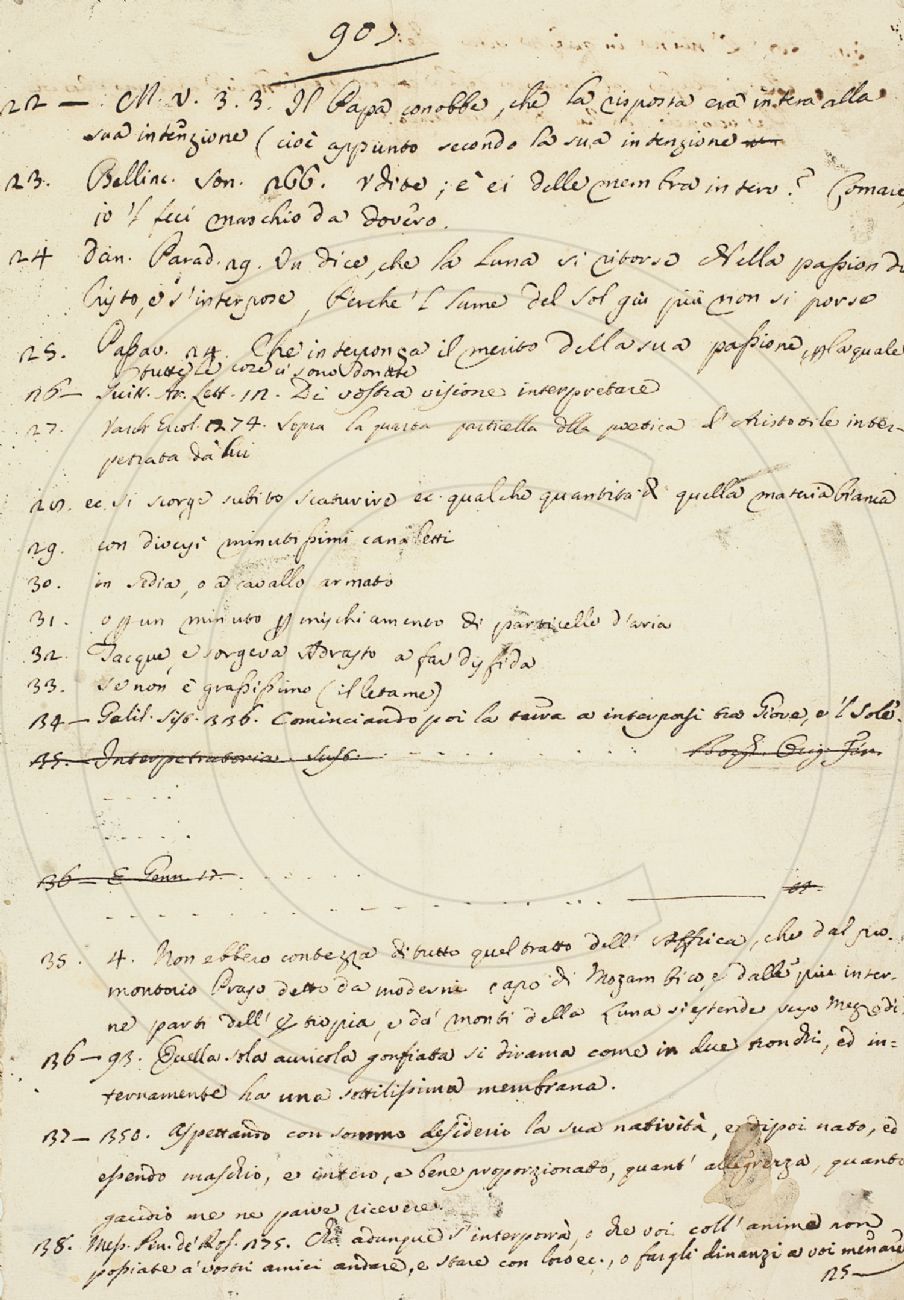 90
22 — M. V. 3. 3. Il Papa conobbe, che la risposta era intera alla
sua intenzione (cioè appunto secondo la sua intenzione
23. Bellinc. son. 266. Udite; è ei delle membra intero? Comare,
io 'l feci maschio da dovero.
24 Dan. Parad. 29. Un dice, che la Luna si ritorse Nella passion di
Cristo, e s'interpose, Perche 'l lume del Sol giù più non si porse
25. Passav. 24. Che interponga il merito della sua passione, p la quale
tutte le cose ci sono donate
26 — Guitt. Ar. Lett. 12. Di vostra visione interpretare
27. Varch. Ercol. 274. Sopra la quarta particella della poetica d'Aristotile inter-
petrata da lui
28. ec. si scorge subito scaturire ec. qualche quantità di quella materia bianca
29. con diversi minutissimi canaletti
30. in sedia, o a cavallo armato
31. o p un minuto p mischiamento di particelle d'aria
32. Tacque, e sorgeva Adrasto a far disfida
33. se non è grassissimo (il letame)
34 — Galil. Sist. 336. Cominciando poi la terra a interporsi tra Giove, e 'l Sole.
35. Interpetratoria. Sust.
36 — E Genn. 17
35. 4. Non ebbero contezza di tutto quel tratto dell' Affrica, che dal pro-
montorio Praso detto da moderni capo di Mozambico, e dalle più inter-
ne parti dell' Etiopia, e da' monti della Luna si estende verso Mezzodi.
36 — 93. Quella sola auricola gonfiata si dirama come in due tronchi, ed in-
ternamente ha una sottilissima membrana.
37 — 350. Aspettando con sommo desiderio la sua natività, e dipoi nato, ed
essendo maschio, e intero, e bene proporzionato, quant' allegrezza, quanto
gaudio me ne parve ricevere.
38. Mess. Pin. de' Ros. 175. Chi adunque s'interporrà, o che voi coll' anima non
possiate a' vostri amici andare, e stare con loro ec., o fargli dinanzi a voi menare
25 —